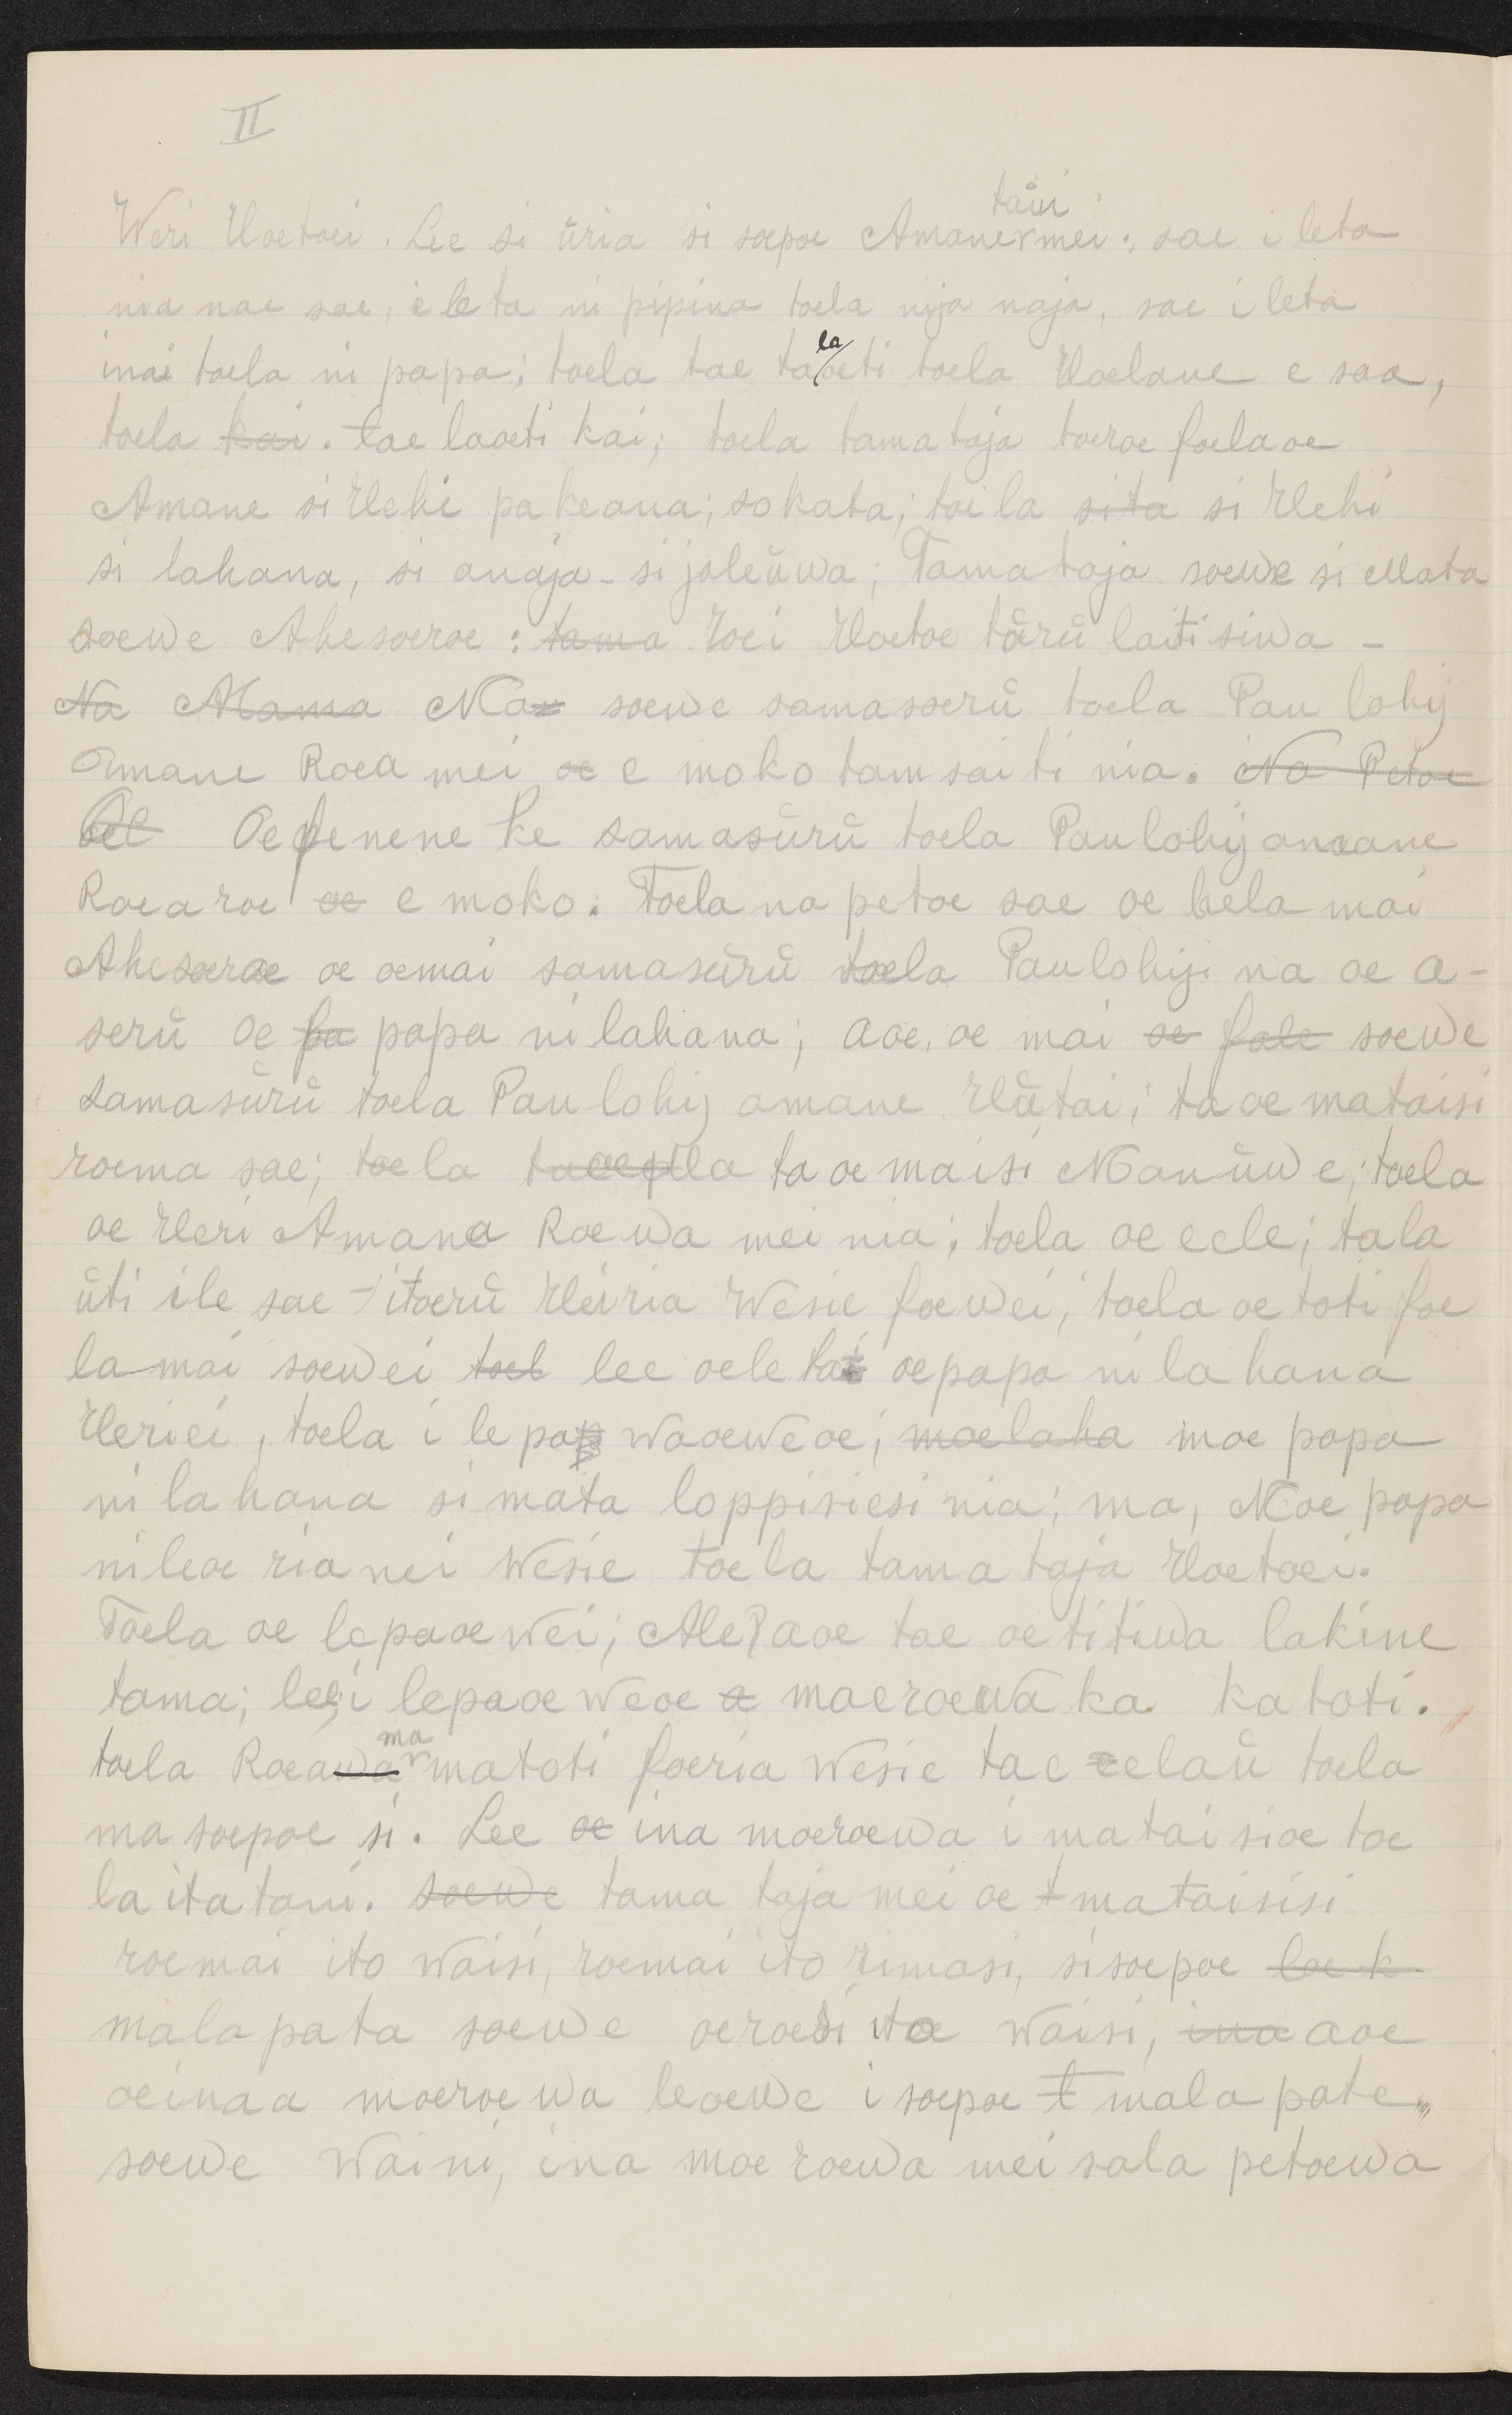 II
Weri Uoetoei. Lee si üria si soepoe Amane taüi mei; sae i leta
nia nae sae, i leta ni pipina toela nija naja, sae i leta
inai toela ni papa; toela tae talaoeti toela Uoelane e saa,
toela kai. tae laoeti kai; toela tamataja toeroe foelaoe
Amane si Uehi pakeana; sokata; toela sita si Uehi
si lahana, si anaja - si jaleüwa; Tamataja soewe si Mata
soewe Ahesoeroe: tama roei Uoetoe tärü laiti siwa -
Na Mama Na soewe samasoerü toela Pau lohij
Amane Roea mei oe e moko tam saiti nia. Na Petoe
Oe Oe fenene ke samasürü toela Paulohij amane
Roea roe oe e moko. Toela na petoe sae oe hela mai
Ahesoeroe oe oemai samasürü toela Paulohij na oe a-
serü oe fa papa ni lahana; aoe, oe mai oe fale soewe
samasürü toela Paulohij amane Uätai; ta oe mataisi
roema sae; toela ta oe maisi Manüwe; toela
oe Ueri Amana Roewa mei nia; toela oe eele; tala
üti ile sae - itoerü Ueiria Wesie foewei; toela oe toti foe
la mai soewei toel lee oele tai oe papa ni lahana
Ueriei, toela i le pa waoeweoe; moelaha moe papa
ni lahana si mata loppisiesi nia; ma, Moe papa
nileoe rianei Wesie toela tamataja Uoetoei.
Toela oe lepaoewei; Ale? aoe tae oe titiwa lakine
tama; lee, i lepaoeweoe a moeroewa ka katoti.
toela Roeawa ma matoti foeria Wesie tae eelaü toela
ma soepoe si. Lee oe ina moeroewa i matai sioe toe
la ita tani. soewe tama taja mei oe t mataisisi
roemai ito Waisi, roemai ito rimasi, si soepoe loe k
malapata soewe oeroesi ita waisi, ina aoe
oeinaa moeroewa leoewe i soepoe t malapate
soewe Waini, ina moe roewa mei sala petoewa